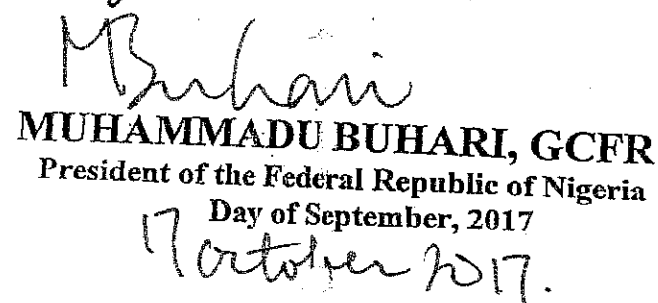 MBuhari
MUHAMMADU BUHARI, GCFR
President of the Federal Republic of Nigeria
Day of September, 2017
17 October 2017.